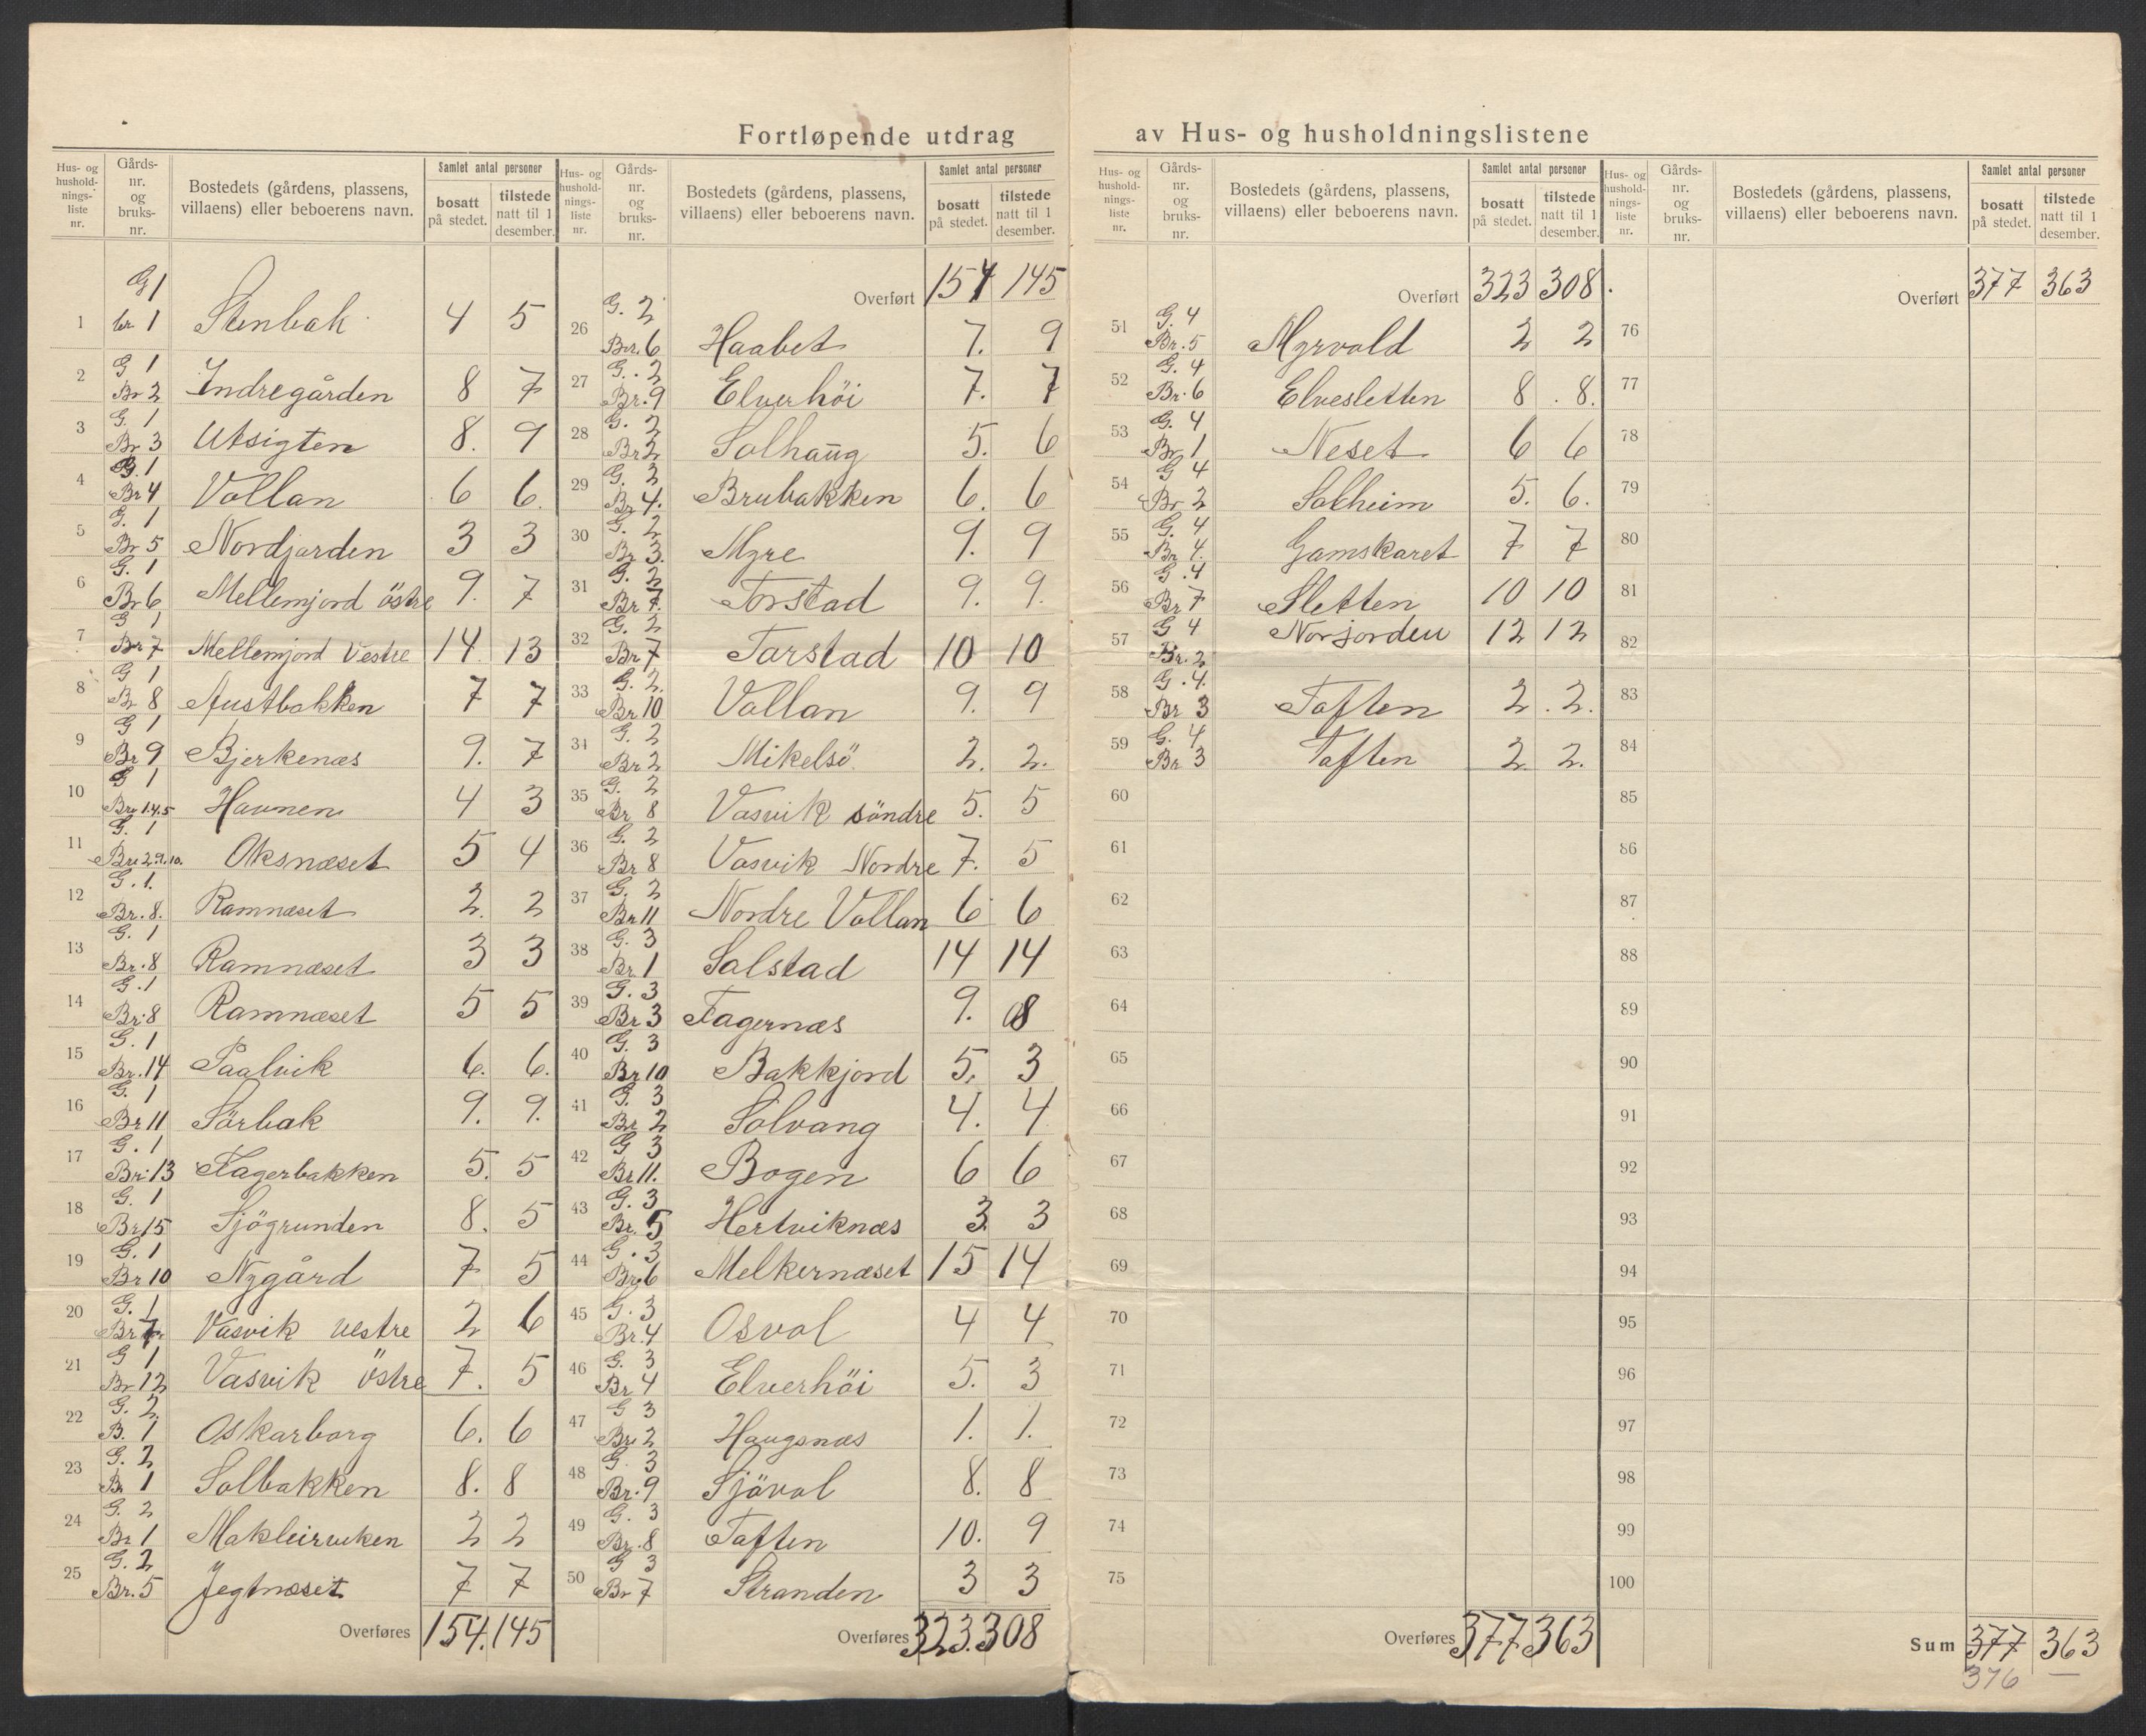 Fortløpende utdrag av Hus- og husholdningslistene
Hus- og hushold-nings-liste nr. | Gårds-nr. og bruks-nr. | Bostedets (gårdens, plassens, villaens) eller beboerens navn. | Samlet antal personer bosatt på stedet. | tilstede natt til 1 desember.
1 G 1 br. 1 Stenbak 4 5
2 G 1 Br 2 Indregården 8 7
3 G. 1 Br 3 Utsigten 8. 9
4 G. 1 Br 4 Vollan 6 6.
5 G. 1 Br 5 Nordjorden 3 3
6 G. 1 Br 6 Mellemjord östre 9. 7
7 G 1 Br 7 Mellemjord Vestre 14 13
8 G 1 Br 8 Austbakken 7 7
9 G 1 Br 9 Bjerkenæs 9. 7
10 G 1 Br. 1.4.5 Havnen 4 3
11 G. 1 Br. 2.9.10. Oksnæset 5 4
12 G. 1. Br. 8. Ramnæset 2. 2
13 G. 1 Br. 8 Ramnæset 3 3
14 G. 1 Br. 8 Ramnæset 5 5
15 G. 1 Br. 14 Paalvik 6. 6.
16 G. 1 Br 11 Sörbak 9. 9.
17 G. 1 Br. 13 Fagerbakken 5. 5
18 G. 1 Br 15 Sjögrunden 8. 5
19 G. 1 Br 10 Nygård 7 5
20 G. 1 Br 7 Vasvik vestre 2 6
21 G 1 Br 12 Vasvik östre 7. 5
22 G. 2. B. 1 Oskarborg 6. 6
23 G. 2 Br 1 Solbakken 8. 8
24 G. 2 Br 1 Makleirviken 2 2
25 G. 2 Br. 5 Jegtnæset 7 7
Overføres 154. 145
Hus- og hushold-nings-liste nr. | Gårds-nr. og bruks-nr. | Bostedets (gårdens, plassens, villaens) eller beboerens navn. | Samlet antal personer bosatt på stedet. | tilstede natt til 1 desember.
Overført 154 145
26 G. 2 Br. 6 Haabet 7. 9
27 G. 2 Br. 9 Elverhöi 7. 7
28 G. 2 Br 2 Solhaug 5. 6
29 G. 2 Br 4. Brubakken 6. 6
30 G. 2 Br 3. Myre 9. 9
31 G. 2 Br 7. Torstad 9. 9.
32 G. 2 Br 7 Tarstad 10 10
33 G. 2. Br 10 Vollan 9. 9
34 G. 2 Br 2 Mikelsö 2. 2.
35 G. 2 Br 8 Vasvik söndre 5. 5
36 G. 2 Br 8 Vasvik Nordre 7. 5
37 G. 2 Br 11 Nordre Vollan 6 6
38 G. 3 Br 1 Solstad 14 14
39 G. 3 Br 3 Fagernæs 9. 8
40 G. 3 Br 10 Bakkjord 5. 3
41 G. 3 Br 2 Solvang 4. 4
42 G 3 Br 11. Bogen 6 6
43 G. 3 Br. 5 Hertviknæs 3. 3
44 G. 3 Br. 6 Melkernæset 15 14
45 G. 3 Br. 4 Osvol 4 4
46 G. 3 Br 4 Elverhöi 5. 3
47 G 3 Br. 2 Haugsnæs 1. 1.
48 G. 3 Br. 9 Sjövol 8. 8
49 G. 3 Br. 8 Toften 10. 9
50 G 3 Br 7 Stranden 3 3
Overføres 323. 308
Hus- og hushold-nings-liste nr. | Gårds-nr. og bruks-nr. | Bostedets (gårdens, plassens, villaens) eller beboerens navn. | Samlet antal personer bosatt på stedet. | tilstede natt til 1 desember.
Overført 323 308
51 G. 4 Br. 5 Myrvold 2 2
52 G. 4 Br. 6 Elvesletten 8. 8.
53 G. 4 Br 1 Neset 6 6
54 G 4 Br 2 Solheim 5. 6.
55 G. 4 Br 4. Gamskaret 7 7
56 G. 4 Br 7 Sletten 10 10
57 G 4 Br. 2 Norjorden 12 12
58 G. 4. Br 3 Toften 2. 2.
59 G. 4 Br 3 Toften 2. 2.
60
61
62
63
64
65
66
67
68
69
70
71
72
73
74
75
Overføres 377 363
Hus- og hushold-nings-liste nr. | Gårds-nr. og bruks-nr. | Bostedets (gårdens, plassens, villaens) eller beboerens navn. | Samlet antal personer bosatt på stedet. | tilstede natt til 1 desember.
Overført 377 363
76
77
78
79
80
81
82
83
84
85
86
87
88
89
90
91
92
93
94
95
96
97
98
99
100
Sum 377 363
376 —